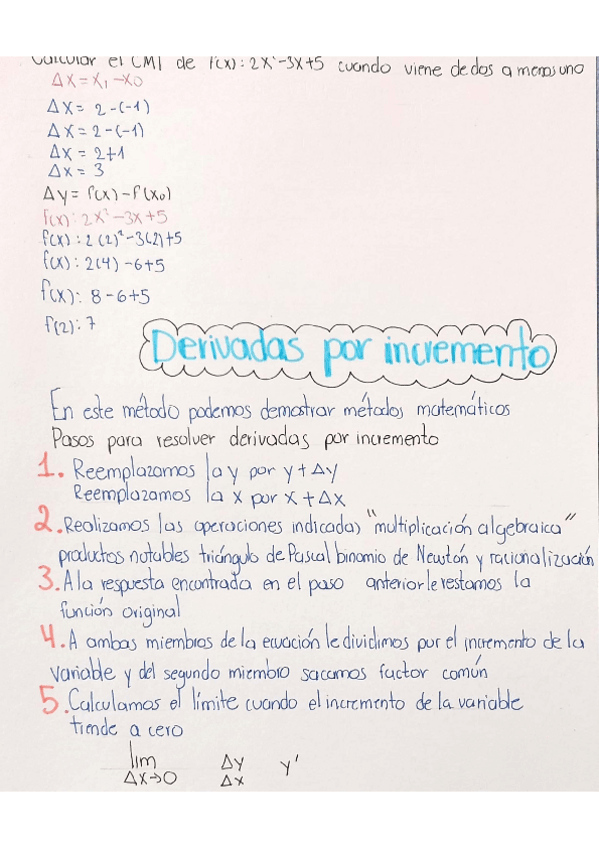 Calcular el CMI de f(x): 2x²-3x+5 cuando viene de dos a menos uno
Δx = x₁ - x0
Δx = 2-(-1)
Δx = 2-(-1)
Δx = 2+1
Δx = 3
Δy = f(x) - f(x₀)
f(x): 2x²-3x+5
f(x): 2(2)²-3(2)+5
f(x): 2(4)-6+5
f(x): 8-6+5
f(2): 7
Derivadas por incremento
En este método podemos demostrar métodos matemáticos
Pasos para resolver derivadas por incremento
1. Reemplazamos la y por y+Δy
Reemplazamos la x por x+Δx
2. Realizamos las operaciones indicadas "multiplicación algebraica"
productos notables triángulo de Pascal binomio de Newtón y racionalización
3. A la respuesta encontrada en el paso anterior le restamos la
función original
4. A ambas miembros de la ecuación le dividimos por el incremento de la
variable y del segundo miembro sacamos factor común
5. Calculamos el límite cuando el incremento de la variable
tiende a cero
lim Δy y'
Δx→0 Δx